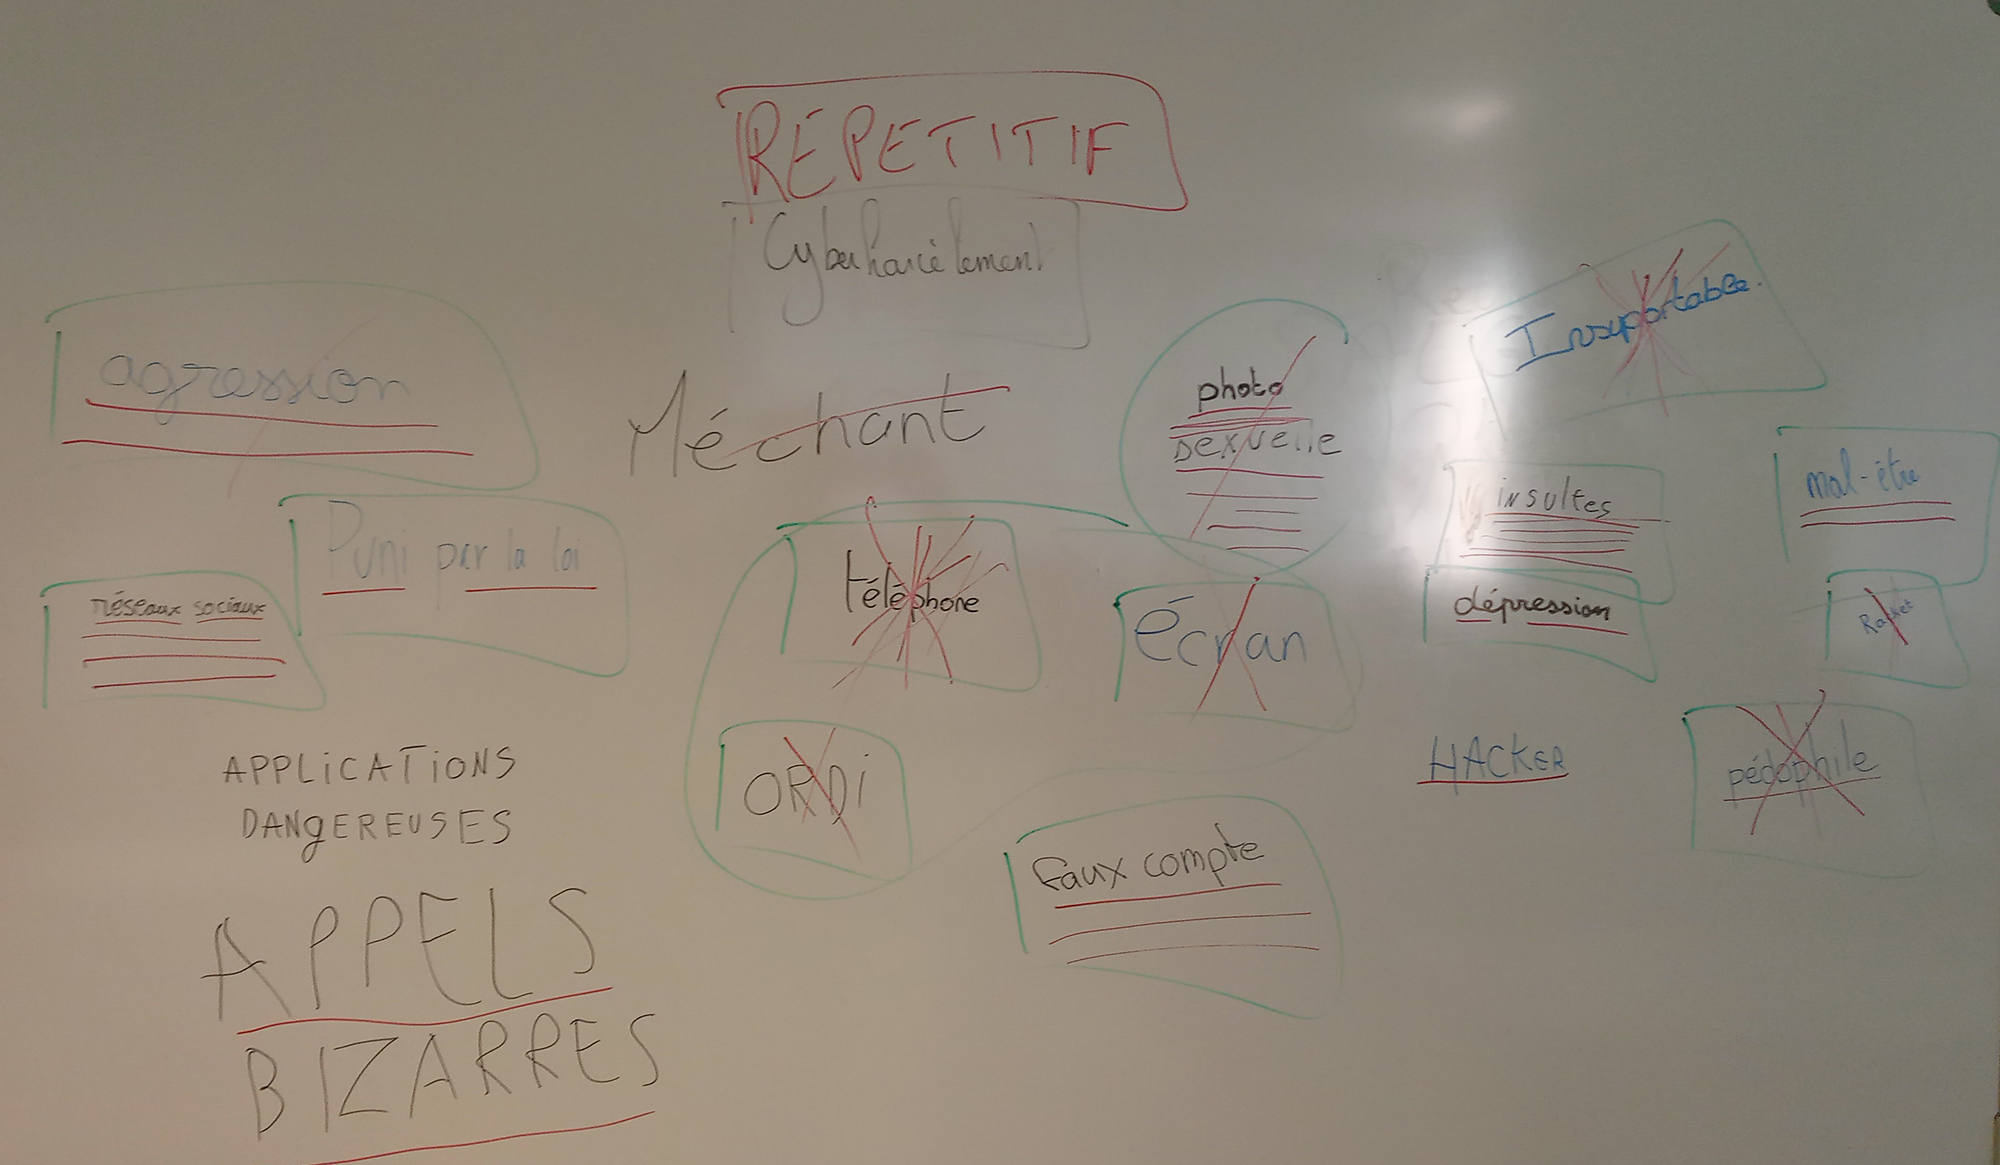 RÉPETITIF
Cyberharcèlement
agression
Méchant
photo
sexuelle
Insuportable.
Puni par la loi
réseaux sociaux
téléphone
écran
insultes
mal-être
dépression
Racket
ORDi
HACKER
pédophile
APPLiCATiONS
DANgEREUSES
faux compte
APPELS
BIZARRES